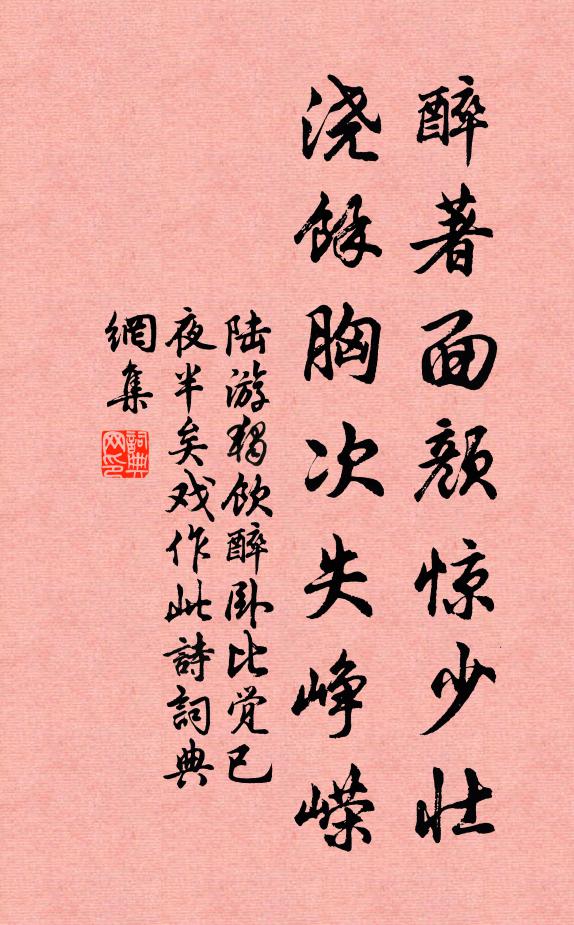 醉著面颜惊少壮
浇馀胸次失峥嵘
陆游独饮醉卧比觉已
夜半矣戏作此詩詞典
網集
詞典网印